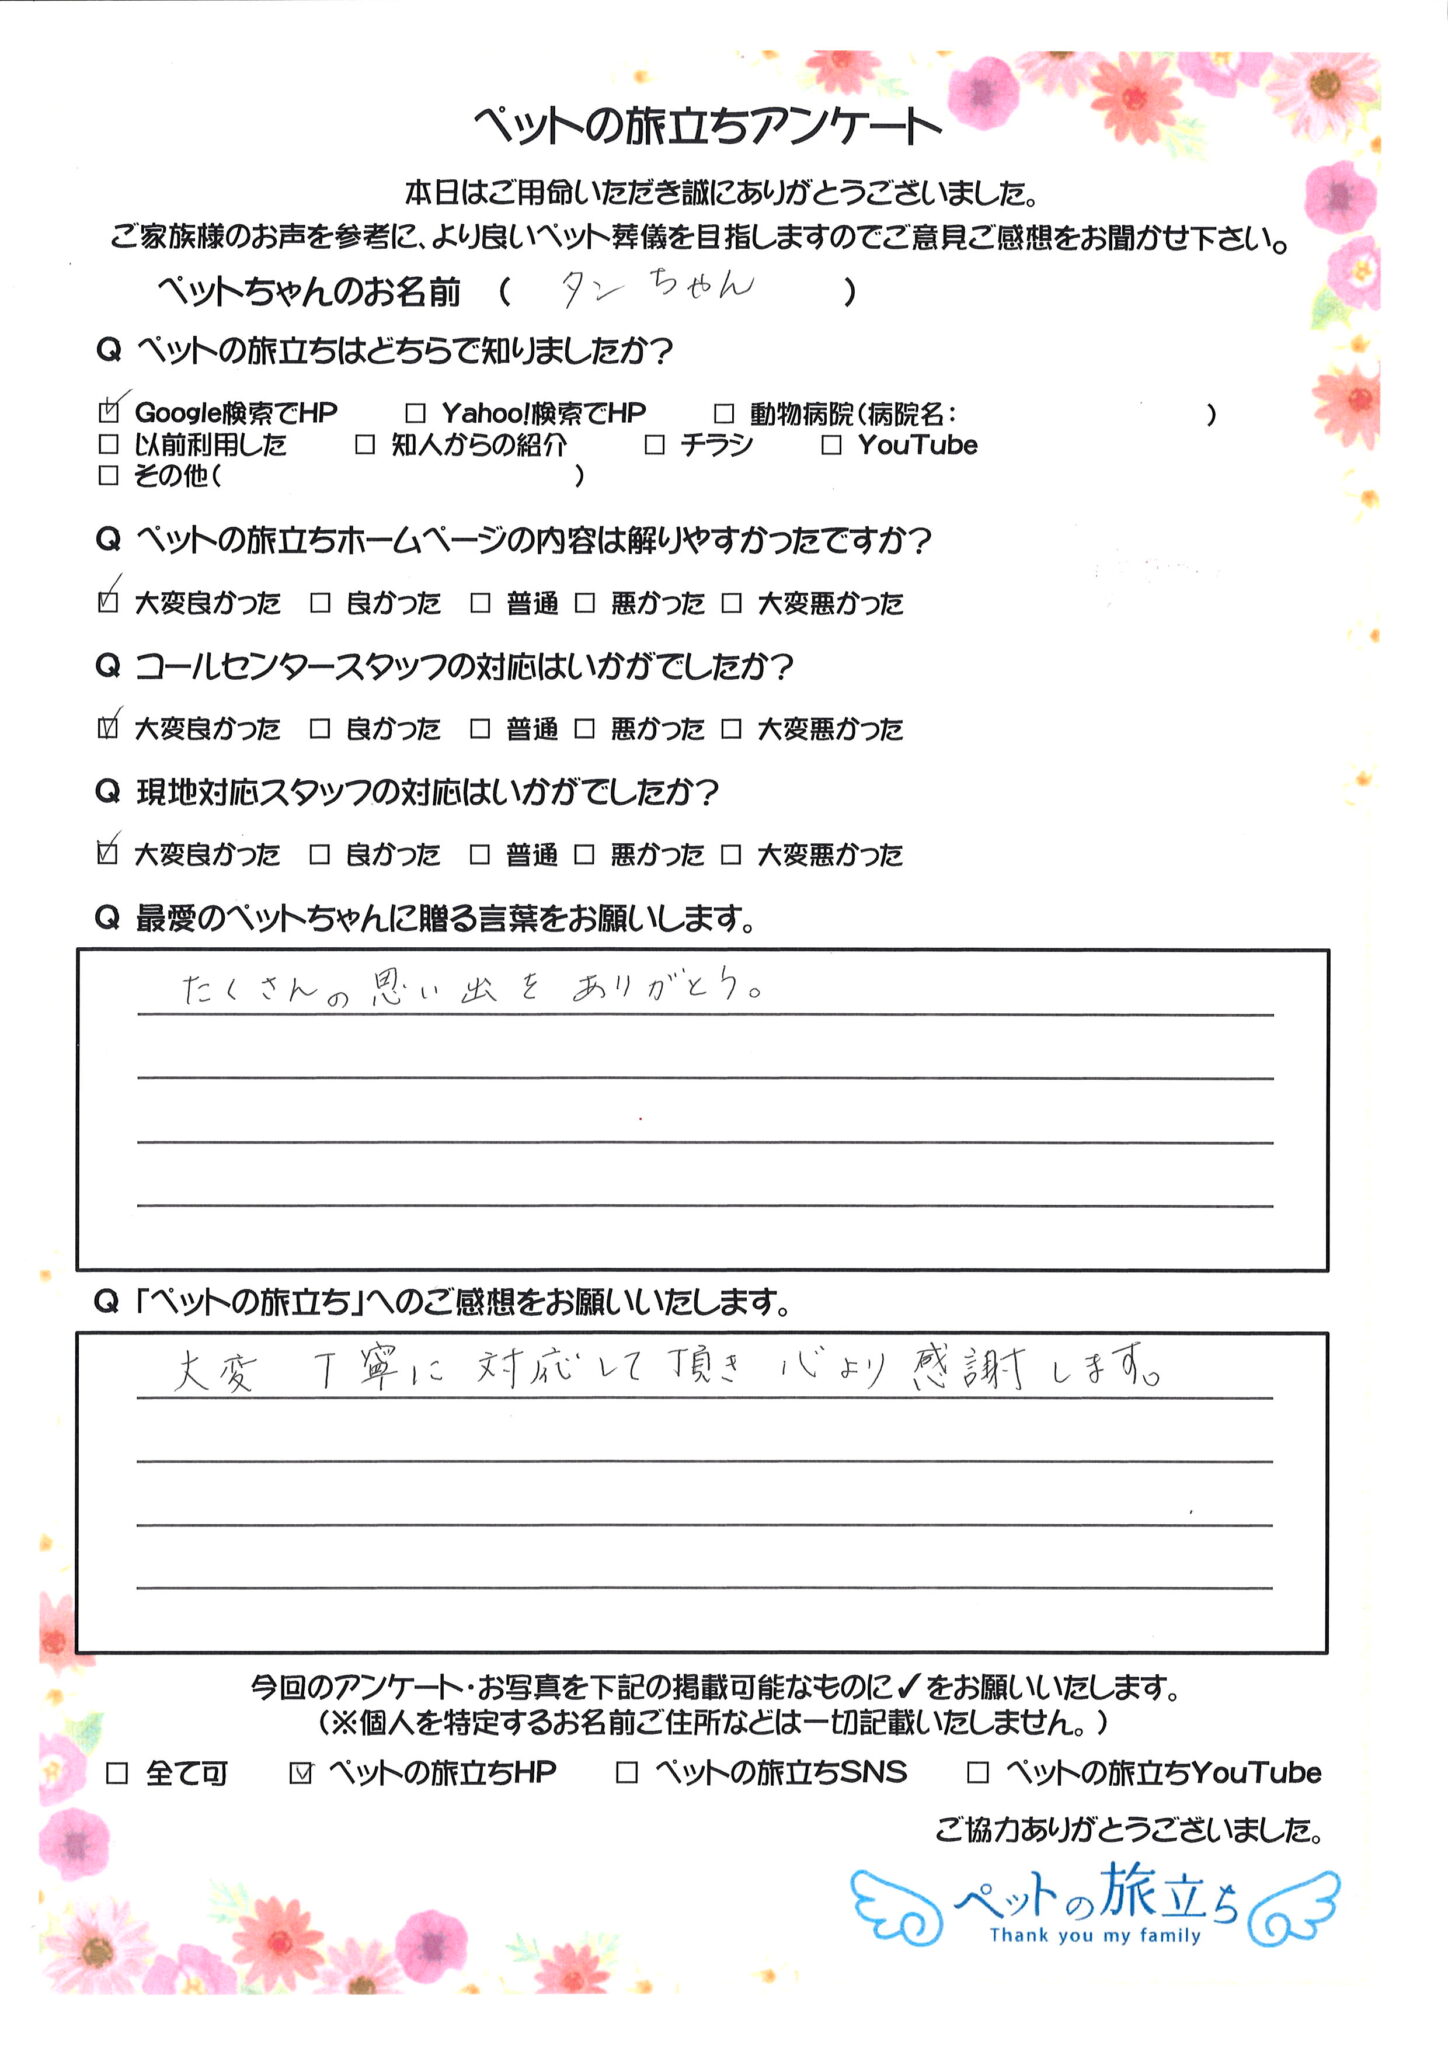 ペットの旅立ちアンケート
本日はご用命いただき誠にありがとうございました。
ご家族様のお声を参考に、より良いペット葬儀を目指しますのでご意見ご感想をお聞かせ下さい。
ペットちゃんのお名前 ( タンちゃん )
Q ペットの旅立ちはどちらで知りましたか?
☑ Google検索でHP □ Yahoo!検索でHP □ 動物病院(病院名: )
□ 以前利用した □ 知人からの紹介 □ チラシ □ YouTube
□ その他( )
Q ペットの旅立ちホームページの内容は解りやすかったですか?
☑ 大変良かった □ 良かった □ 普通 □ 悪かった □ 大変悪かった
Q コールセンタースタッフの対応はいかがでしたか?
☑ 大変良かった □ 良かった □ 普通 □ 悪かった □ 大変悪かった
Q 現地対応スタッフの対応はいかがでしたか?
☑ 大変良かった □ 良かった □ 普通 □ 悪かった □ 大変悪かった
Q 最愛のペットちゃんに贈る言葉をお願いします。
たくさんの思い出をありがとう。
Q 「ペットの旅立ち」へのご感想をお願いいたします。
大変 丁寧に対応して頂き心より感謝します。
今回のアンケート・お写真を下記の掲載可能なものに✓をお願いいたします。
(※個人を特定するお名前ご住所などは一切記載いたしません。)
□ 全て可 ☑ ペットの旅立ちHP □ ペットの旅立ちSNS □ ペットの旅立ちYouTube
ご協力ありがとうございました。
ペットの旅立ち
Thank you my family